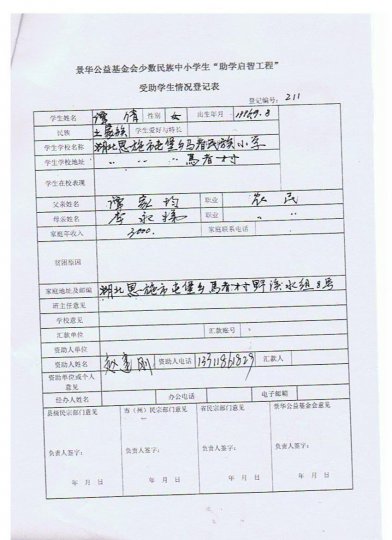 景华公益基金会少数民族中小学生“助学启智工程”
受助学生情况登记表
登记编号：211
学生姓名 谭倩 性别 女 出生年月
民族 土家族 学生爱好与特长
学生学校名称 湖北恩施市屯堡乡马者民族小学
学生学校地址 〃 〃 〃 馬者村
学生在校表现
父亲姓名 谭家均 职业 农民
母亲姓名 李永 职业 〃 〃
家庭年收入 3000. 家庭联系电话
贫困原因
家庭地址及邮编 湖北恩施市屯堡乡馬者村野溪水组8号
班主任意见
学校意见
汇款单位 汇款帐号
资助人单位
资助人姓名 赵 刚 资助人电话 汇款人
资助单位或个人意见
经办人姓名 办公电话 电子邮箱
县级民宗部门意见 市（州）民宗部门意见 省民宗部门意见 景华公益基金会意见
负责人签字： 负责人签字： 负责人签字： 负责人签字：
年 月 日 年 月 日 年 月 日 年 月 日